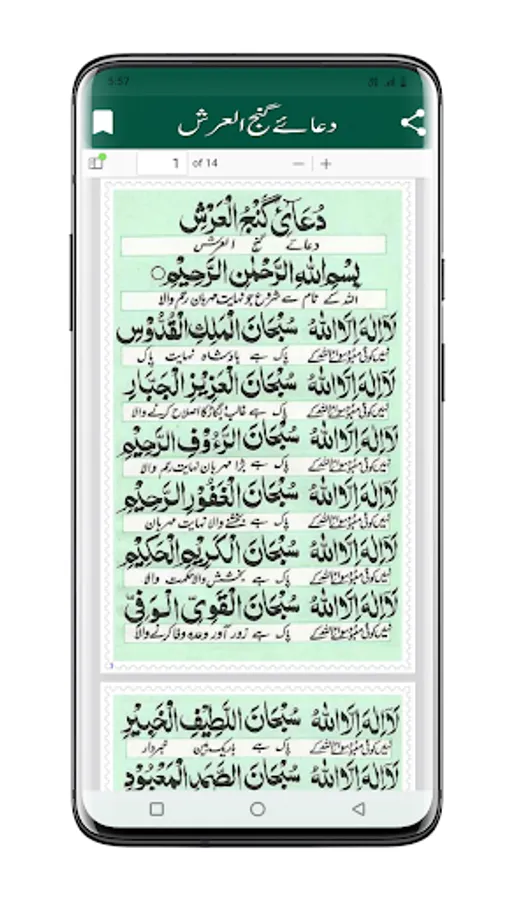 5:57
دعائے گنج العرش
1 of 14
دُعَائِ گَنْجُ الْعَرْشِ
دعائے گنج العرش
بِسْمِ اللهِ الرَّحْمٰنِ الرَّحِيْمِ
اللہ کے نام سے شروع جو نہایت مہربان رحم والا
لَآ اِلٰهَ اِلَّا اللهُ سُبْحَانَ الْمَلِكِ الْقُدُّوْسِ
نہیں کوئی معبود سوائے اللہ کے پاک ہے بادشاہ نہایت پاک
لَآ اِلٰهَ اِلَّا اللهُ سُبْحَانَ الْعَزِيْزِ الْجَبَّارِ
نہیں کوئی معبود سوائے اللہ کے پاک ہے غالب بگاڑ کا اصلاح کرنے والا
لَآ اِلٰهَ اِلَّا اللهُ سُبْحَانَ الرَّءُوْفِ الرَّحِيْمِ
نہیں کوئی معبود سوائے اللہ کے پاک ہے بڑا مہربان نہایت رحم والا
لَآ اِلٰهَ اِلَّا اللهُ سُبْحَانَ الْغَفُوْرِ الرَّحِيْمِ
نہیں کوئی معبود سوائے اللہ کے پاک ہے بخشنے والا نہایت مہربان
لَآ اِلٰهَ اِلَّا اللهُ سُبْحَانَ الْكَرِيْمِ الْحَكِيْمِ
نہیں کوئی معبود سوائے اللہ کے پاک ہے بخشش والا حکمت والا
لَآ اِلٰهَ اِلَّا اللهُ سُبْحَانَ الْقَوِىِّ الْوَفِىِّ
نہیں کوئی معبود سوائے اللہ کے پاک ہے زور آور وعدہ وفا کرنے والا
لَآ اِلٰهَ اِلَّا اللهُ سُبْحَانَ اللَّطِيْفِ الْخَبِيْرِ
نہیں کوئی معبود سوائے اللہ کے پاک ہے باریک بین خبردار
لَآ اِلٰهَ اِلَّا اللهُ سُبْحَانَ الصَّمَدِ الْمَعْبُوْدِ